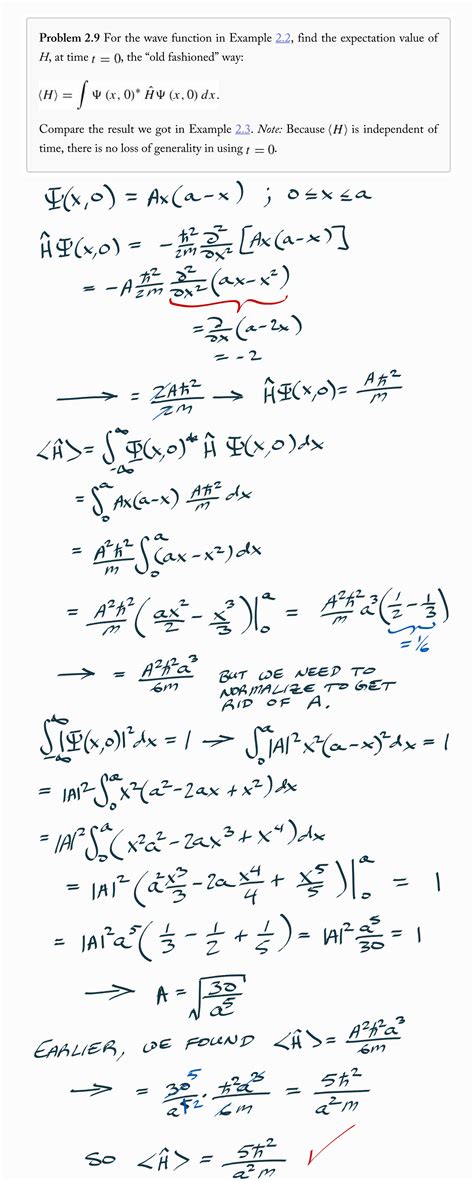 Problem 2.9 For the wave function in Example 2.2, find the expectation value of
H, at time t = 0, the “old fashioned” way:
⟨H⟩ = ∫ Ψ (x, 0)* ĤΨ (x, 0) dx.
Compare the result we got in Example 2.3. Note: Because ⟨H⟩ is independent of
time, there is no loss of generality in using t = 0.
Ψ(x,0) = Ax(a-x) ; 0≤x≤a
ĤΨ(x,0) = -ħ²/2m ∂²/∂x² [Ax(a-x)]
= -A ħ²/2m ∂²/∂x² (ax-x²)
= ∂/∂x (a-2x)
= -2
⟶ = 2Aħ²/2m → ĤΨ(x,0) = Aħ²/m
<Ĥ> = ∫_{-∞}^{∞} Ψ(x,0)* Ĥ Ψ(x,0) dx
= ∫₀ᵃ Ax(a-x) Aħ²/m dx
= A²ħ²/m ∫₀ᵃ (ax-x²) dx
= A²ħ²/m (ax²/2 - x³/3)|₀ᵃ = A²ħ²/m a³ (1/2 - 1/3)
= 1/6
⟶ = A²ħ²a³/6m BUT WE NEED TO
NORMALIZE TO GET
RID OF A.
∫_{-∞}^{∞} |Ψ(x,0)|² dx = 1 → ∫₀ᵃ |A|² x² (a-x)² dx = 1
= |A|² ∫₀ᵃ x² (a² - 2ax + x²) dx
= |A|² ∫₀ᵃ (x²a² - 2ax³ + x⁴) dx
= |A|² (a² x³/3 - 2a x⁴/4 + x⁵/5)|₀ᵃ = 1
= |A|² a⁵ (1/3 - 1/2 + 1/5) = |A|² a⁵/30 = 1
⟶ A = √(30/a⁵)
EARLIER, WE FOUND <Ĥ> = A²ħ²a³/6m
⟶ = 30 5/a⁵ 2 · ħ²a³/6m = 5ħ²/a²m
SO <Ĥ> = 5ħ²/a²m ✓